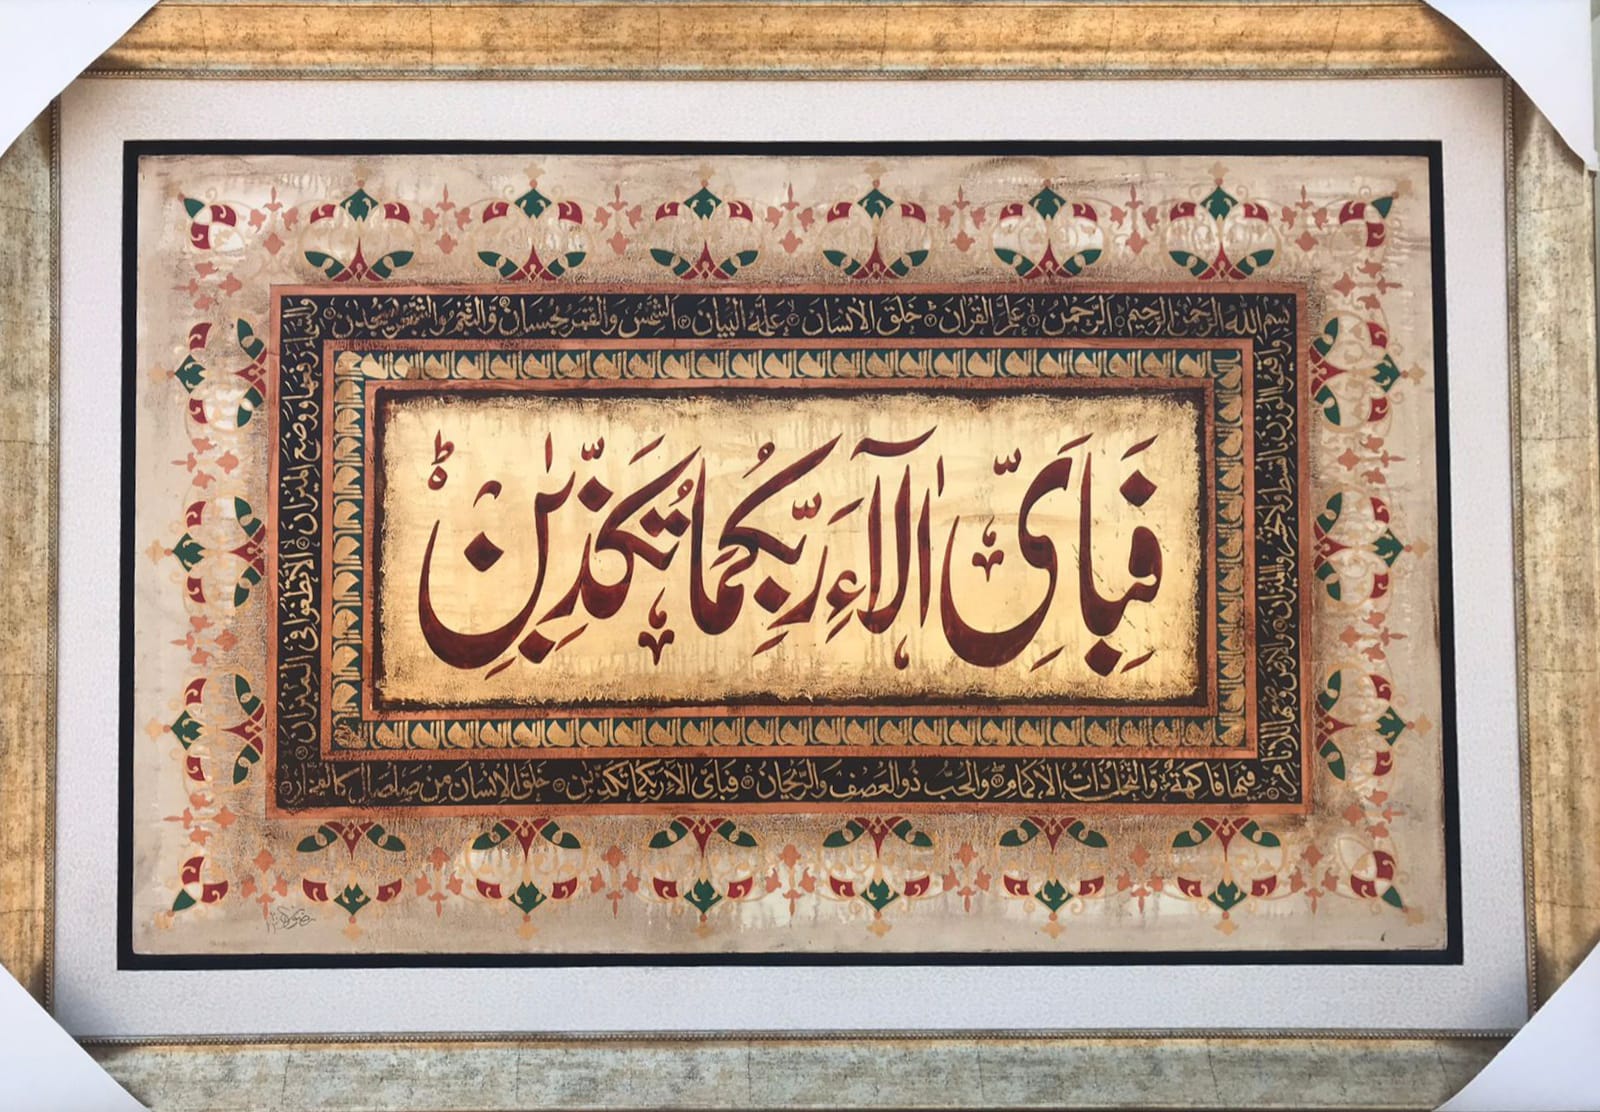 فَبِاَىِّ اٰلَآءِ رَبِّكُمَا تُكَذِّبٰنِ ؕ
بسم الله الرحمن الرحيم الرحمن علم القران خلق الانسان علمه البيان الشمس والقمر بحسبان والنجم والشجر يسجدن
والسماء رفعها ووضع الميزان الا تطغوا فى الميزان
واقيموا الوزن بالقسط ولا تخسروا الميزان والارض وضعها للانام
فيها فاكهة والنخل ذات الاكمام والحب ذو العصف والريحان فباى الاء ربكما تكذبن خلق الانسان من صلصال كالفخار